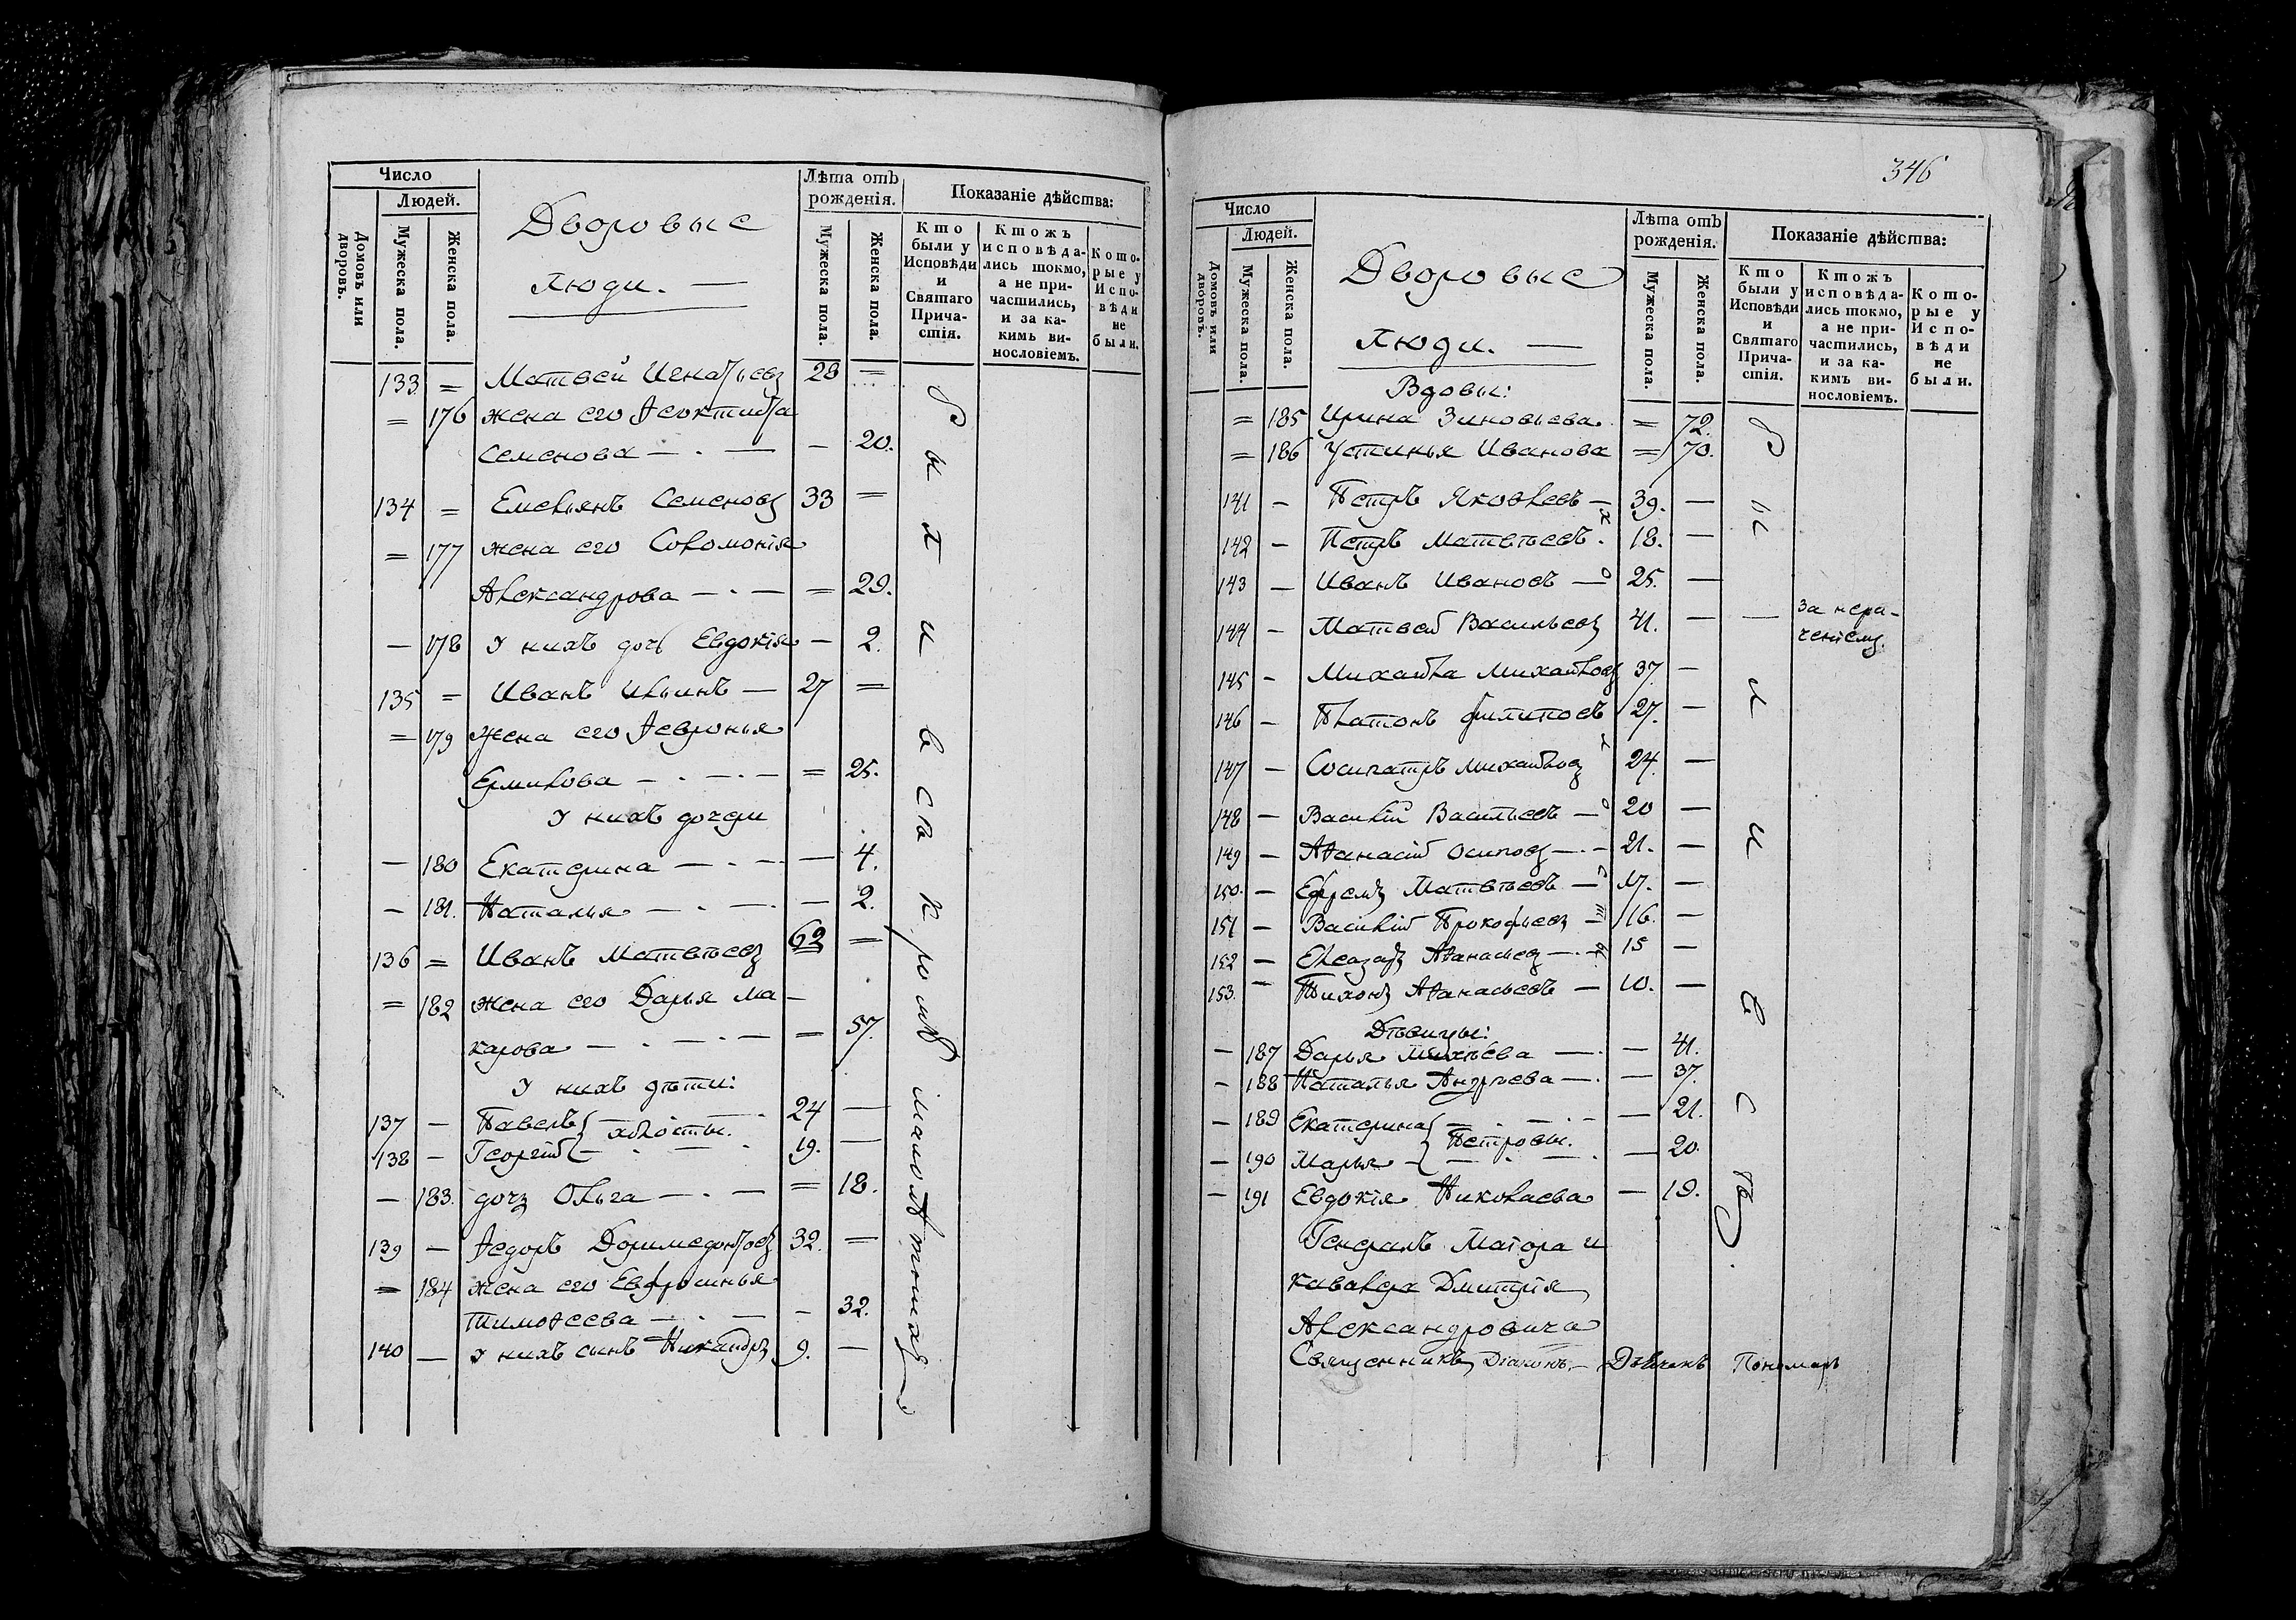 Число
Людей.
Домовъ или дворовъ.
Мужеска пола.
Женска пола.
Дворовые
люди. —
Лѣта отъ рожденія.
Мужеска пола.
Женска пола.
Показаніе дѣйства:
Кто были у Исповѣди и Святаго Прича-стія.
Ктожъ исповѣда-лись токмо, а не при-частились, и за ка-кимъ ви-нословіемъ.
Кото-рые у Испо-вѣди не были.
133 = Матвей Игнатьевъ 28 =
= 176 жена его Ѳеоктиста
Семенова — . — — 20.
134 = Емельянъ Семеновъ 33 =
= 177 жена его Соломонія
Александрова — . — = 29.
— 178 У нихъ дочь Евдокія — 2.
135 = Иванъ Ильинъ — 27 =
= 179 Жена его Ѳевронья
Ермилова — . — . — = 25.
У нихъ дочери
— 180 Екатерина — . — . — 4.
— 181. Наталья — . — . — 2.
136 = Иванъ Матвѣевъ 62 =
= 182 жена его Дарья Ма —
карова — . — . — = 57.
У нихъ дѣти:
137 — Павелъ } холосты. 24 —
138 — Георгій } 19. —
— 183. дочь Ольга — . — = 18.
139 — Ѳедоръ Доримедонтовъ 32. —
= 184 жена его Евфросинья
Тимоѳеева — . — — 32.
140 — У нихъ сынъ Никандръ 9. —
Быти и вси кромѣ малолѣтнихъ
346
Число
Людей.
Домовъ или дворовъ.
Мужеска пола.
Женска пола.
Дворовые
люди. —
Лѣта отъ рожденія.
Мужеска пола.
Женска пола.
Показаніе дѣйства:
Кто были у Исповѣди и Святаго Прича-стія.
Ктожъ исповѣда-лись токмо, а не при-частились, и за ка-кимъ ви-нословіемъ.
Кото-рые у Испо-вѣди не были.
Вдовы:
= 185 Ирина Зиновьева = 72.
= 186 Устинья Иванова = 70.
141 — Петръ Яковлевъ — 39. —
142 — Петръ Матвѣевъ . 18. —
143 — Иванъ Ивановъ — 25. —
144 — Матвей Васильевъ 41. — — за нера-
ченіемъ.
145 — Михайла Михайловъ 37. —
146 — Платонъ Филиповъ 27. —
147 — Сосипатръ Михайловъ 24. —
148 — Василій Васильевъ — 20 —
149 — Аѳанасій Осиповъ — . — 21. —
150. — Ефремъ Матвѣевъ — 17. —
151 — Василій Прокофьевъ — 16. —
152 — Елеазаръ Аѳанасьевъ — . — 15 —
153. — Тихонъ Аѳанасьевъ — 10. —
Дѣвицы:
— 187 Дарья Михѣева — . — 41.
— 188 Наталья Андрѣева — . — 37.
— 189 Екатерина } Петровы. — 21.
— 190 Марья } — 20.
— 191 Евдокія Николаева — 19.
Генералъ Маіора и
кавалера Дмитрія
Александровича
Священникъ, Діаконъ. — Дьячекъ Пономарь